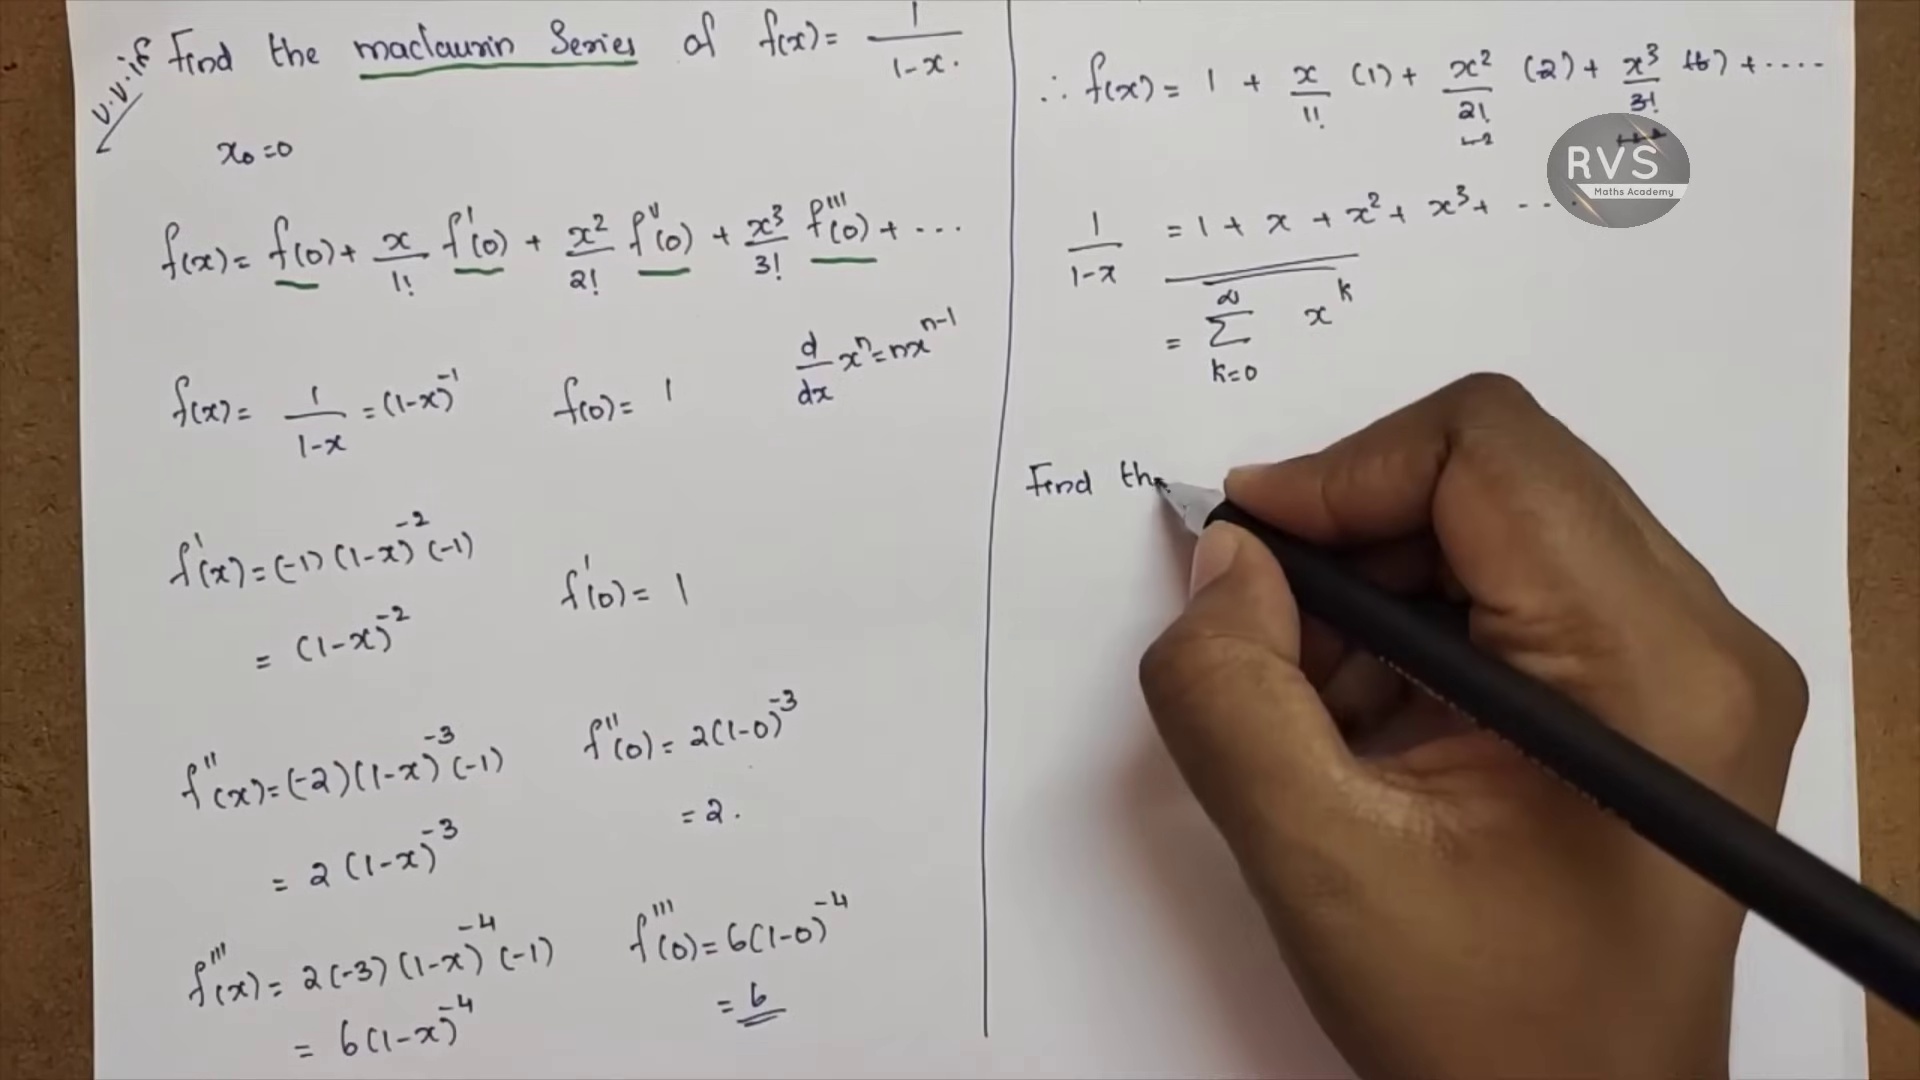 v.v.if Find the maclaurin Series of f(x) = 1/(1-x).
x₀ = 0
f(x) = f(0) + x/1! f'(0) + x²/2! f''(0) + x³/3! f'''(0) + ...
d/dx xⁿ = nxⁿ⁻¹
f(x) = 1/(1-x) = (1-x)⁻¹ f(0) = 1
f'(x) = (-1)(1-x)⁻²(-1) f'(0) = 1
= (1-x)⁻²
f''(x) = (-2)(1-x)⁻³(-1) f''(0) = 2(1-0)⁻³
= 2(1-x)⁻³ = 2.
f'''(x) = 2(-3)(1-x)⁻⁴(-1) f'''(0) = 6(1-0)⁻⁴
= 6(1-x)⁻⁴ = 6
∴ f(x) = 1 + x/1! (1) + x²/2! (2) + x³/3! (6) + ....
1/(1-x) = 1 + x + x² + x³ + ....
= ∞Σk=0 xᵏ
Find the
RVS
Maths Academy